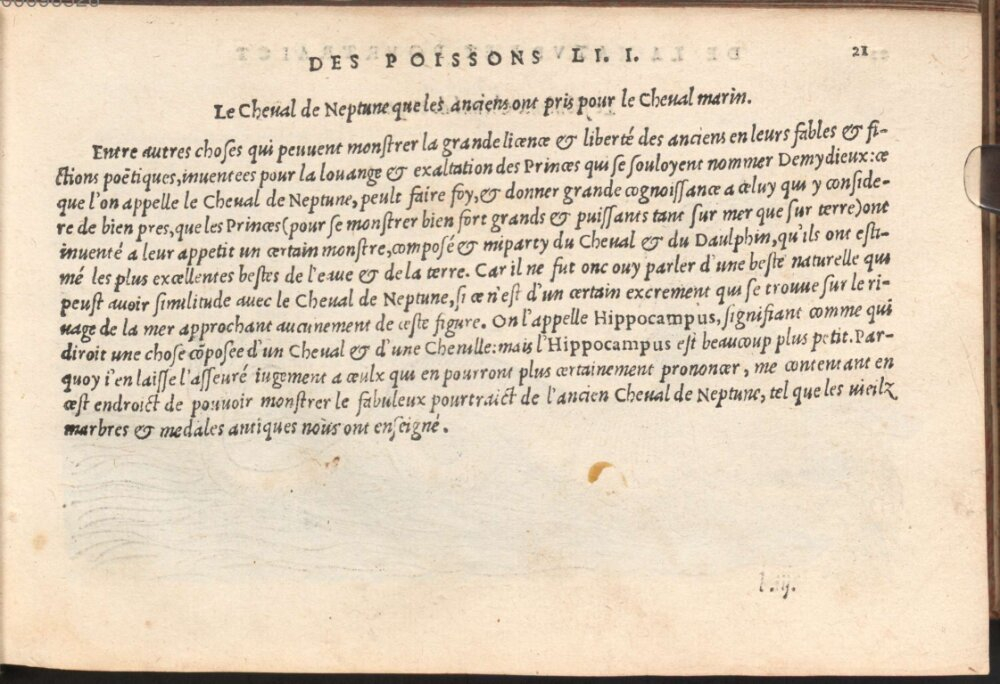 DES POISSONS LI. I. 21
Le Cheual de Neptune que les anciens ont pris pour le Cheual marin.
Entre autres choses qui peuuent monſtrer la grande licence & liberté des anciens en leurs fables & fi-
ctions poëtiques, inuentees pour la louange & exaltation des Princes qui ſe ſouloyent nommer Demydieux: ce
que l'on appelle le Cheual de Neptune, peult faire foy, & donner grande cognoiſſance a celuy qui y conſide-
re de bien pres, que les Princes (pour ſe monſtrer bien fort grands & puiſſants tant ſur mer que ſur terre) ont
inuenté a leur appetit un certain monſtre, compoſé & miparty du Cheual & du Daulphin, qu'ils ont eſti-
mé les plus excellentes beſtes de l'eaue & de la terre. Car il ne fut onc ouy parler d'une beſte naturelle qui
peuſt auoir ſimilitude auec le Cheual de Neptune, ſi ce n'eſt d'un certain excrement qui ſe trouue ſur le ri-
uage de la mer approchant aucunement de ceſte figure. On l'appelle Hippocampus, ſignifiant comme qui
diroit une choſe cõpoſee d'un Cheual & d'une Chenille: mais l'Hippocampus eſt beaucoup plus petit. Par-
quoy i'en laiſſe l'aſſeuré iugement a ceulx qui en pourront plus certainement prononcer, me contentant en
ceſt endroict de pouuoir monſtrer le fabuleux pourtraict de l'ancien Cheual de Neptune, tel que les vieilz
marbres & medales antiques nous ont enſeigné.